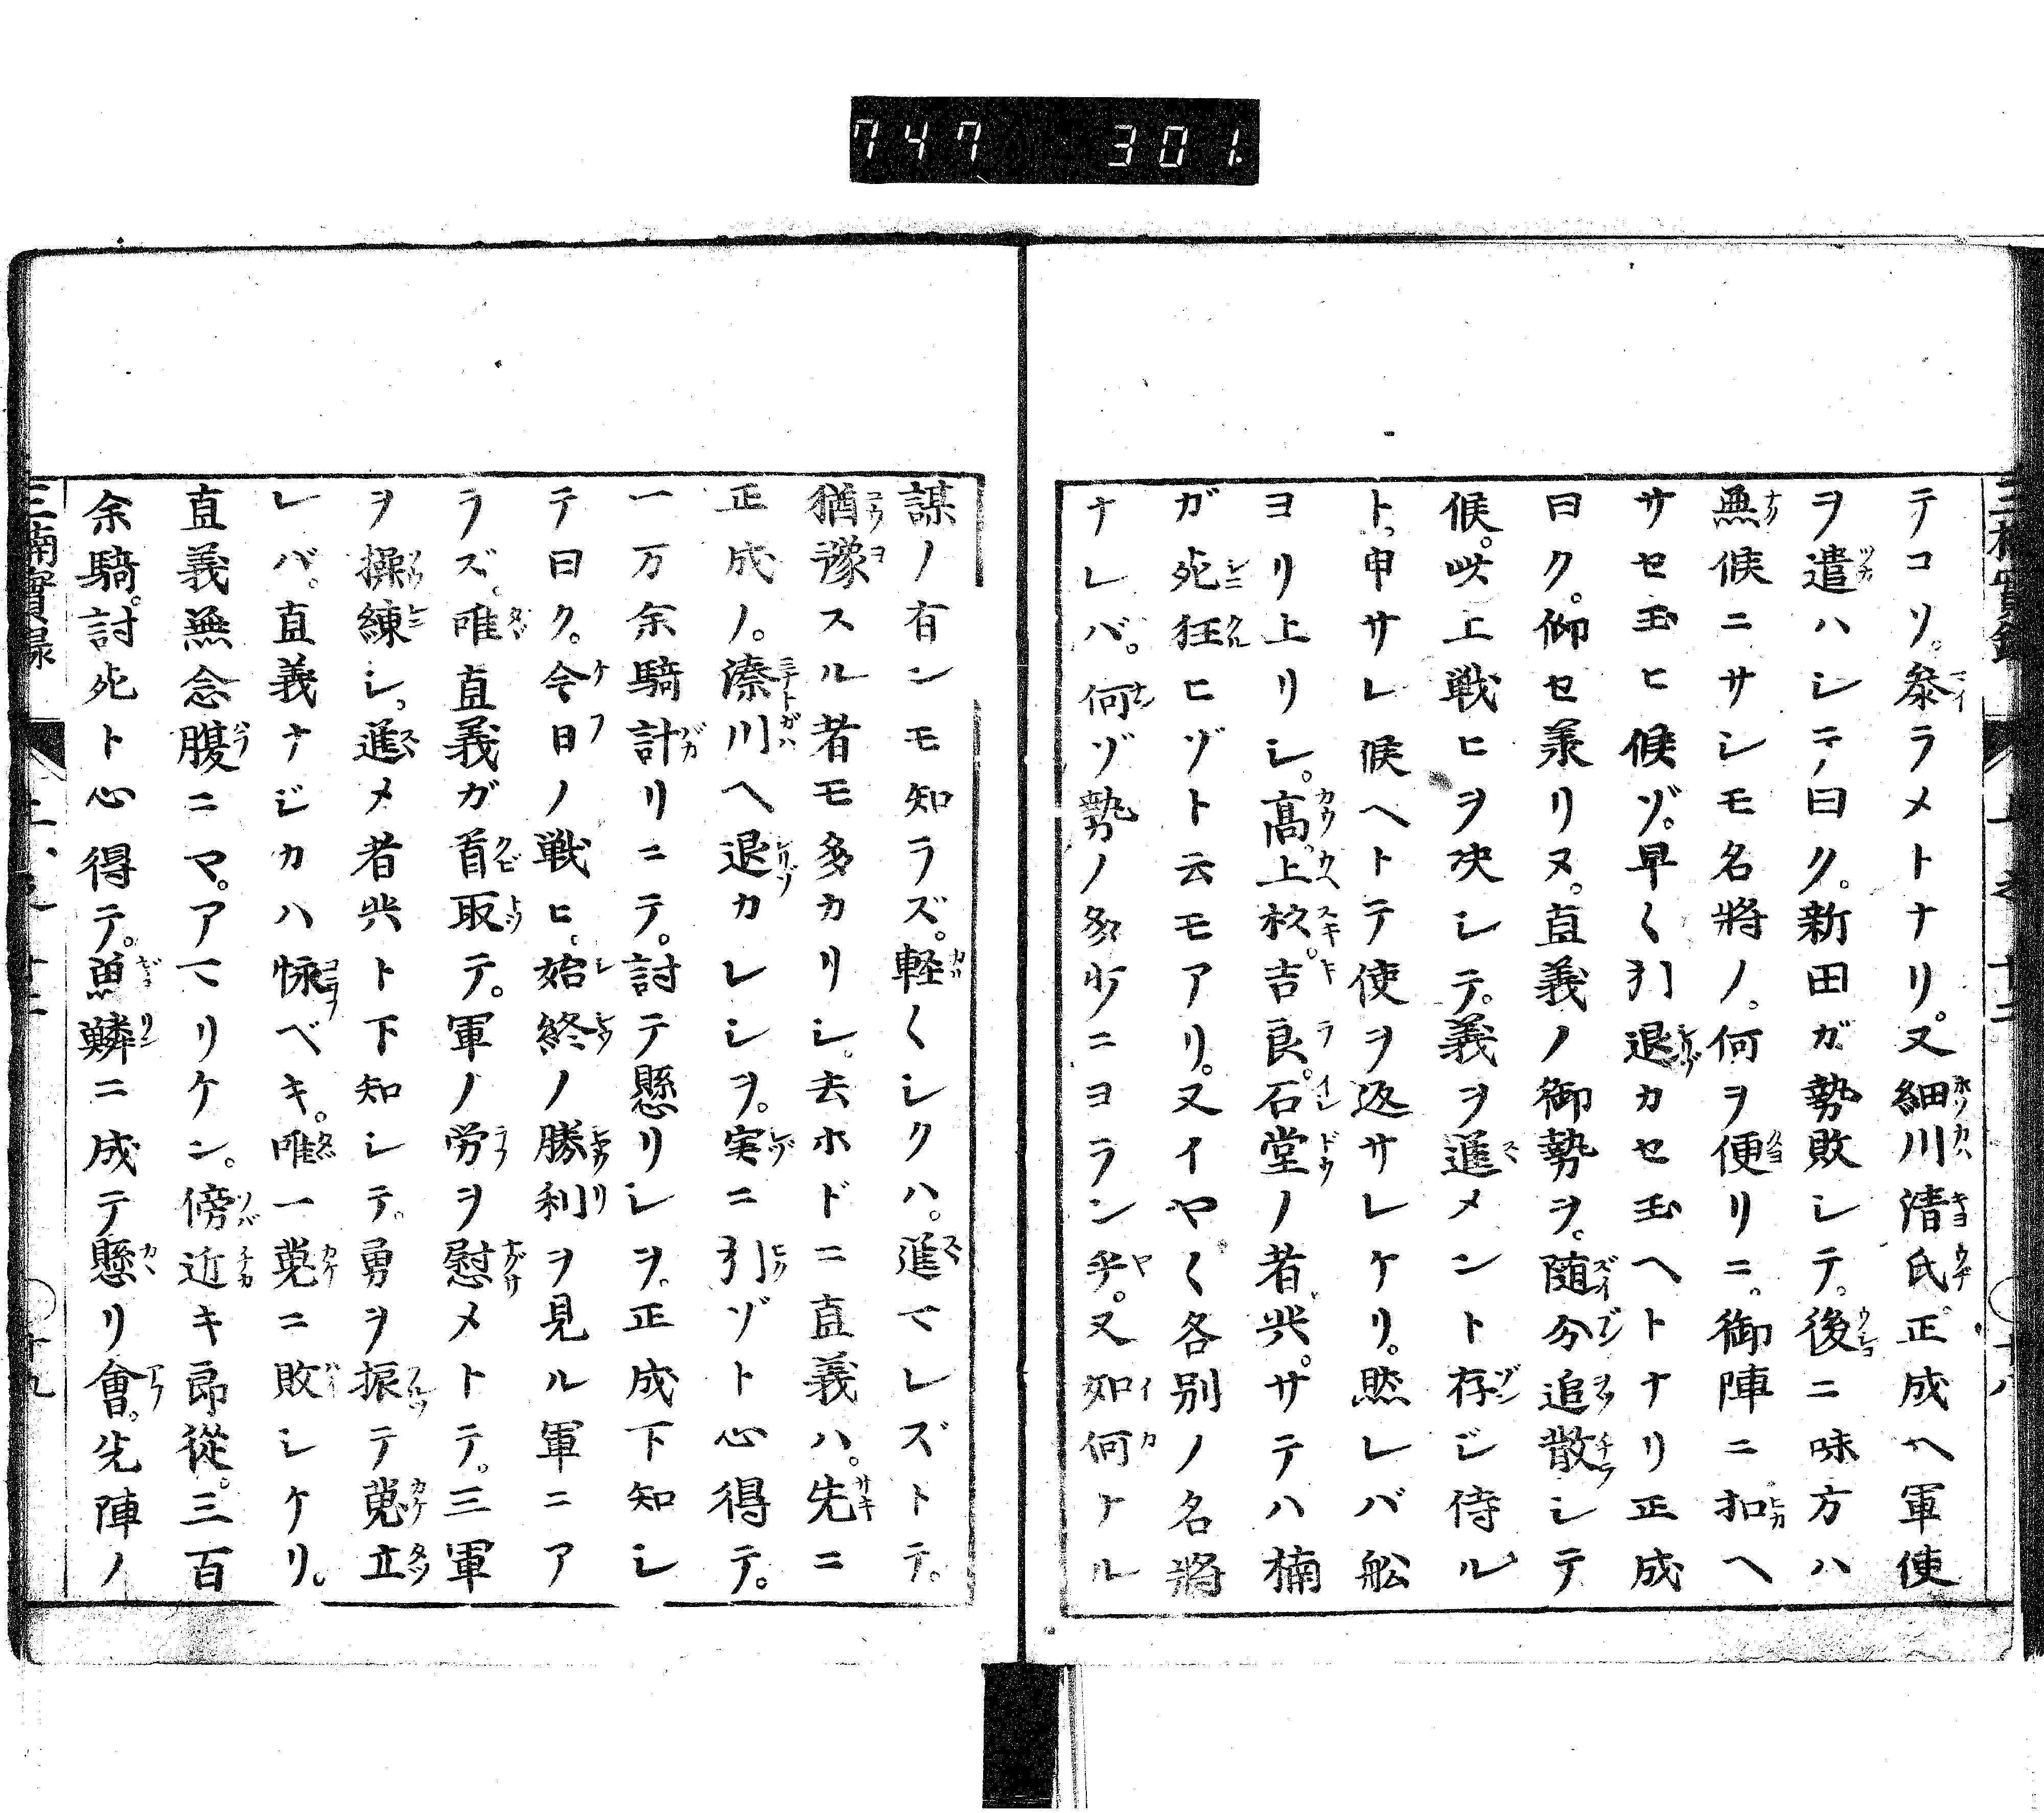 747 301
テコリ。参ラメトナリ。又細川清氏。正成ヘ軍使
ヲ遣ハシテ曰ク。新田ガ勢敗シテ。後ニ味方ハ
無候ニサシモ名将ノ。何ヲ便リニ。御陣ニ扣ヘ
サセ玉ヒ候ゾ。早く引退カセ玉ヘトナリ正成
曰ク。仰セ羕リヌ。直義ノ御勢ヲ。随分追散シテ
候。此上戦ヒヲ决シテ。義ヲ進メント存ジ侍ル
ト。申サレ候ヘトテ使ヲ返サレケリ。然レバ舩
ヨリ上リシ。高。上杉。吉良。石堂ノ者共。サテハ楠
ガ死狂ヒゾト云モアリ。又イヤく各別ノ名将
ナレバ。何ゾ勢ノ多少ニヨラン乎。又如何ナル
謀ノ有ンモ知ラズ。軽くシクハ。進マレズトテ。
猶豫スル者モ多カリシ。去ホドニ直義ハ。先ニ
正成ノ。湊川ヘ退カレシヲ。実ニ引ゾト心得テ。
一万余騎計リニテ。討テ懸リシヲ。正成下知シ
テ曰ク。今日ノ戦ヒ。始終ノ勝利ヲ見ル軍ニア
ラズ。唯直義ガ首取テ。軍ノ労ヲ慰メトテ。三軍
ヲ操練シ。進メ者共ト下知シテ。勇ヲ振テ蒐立
レバ。直義ナジカハ怺ベキ。唯一蒐ニ敗シケリ。
直義無念腹ニマ。アマリケン。傍近キ郎従。三百
余騎。討死ト心得テ。魚鱗ニ成テ懸リ會。先陣ノ
三楠實録 上之十二 十九